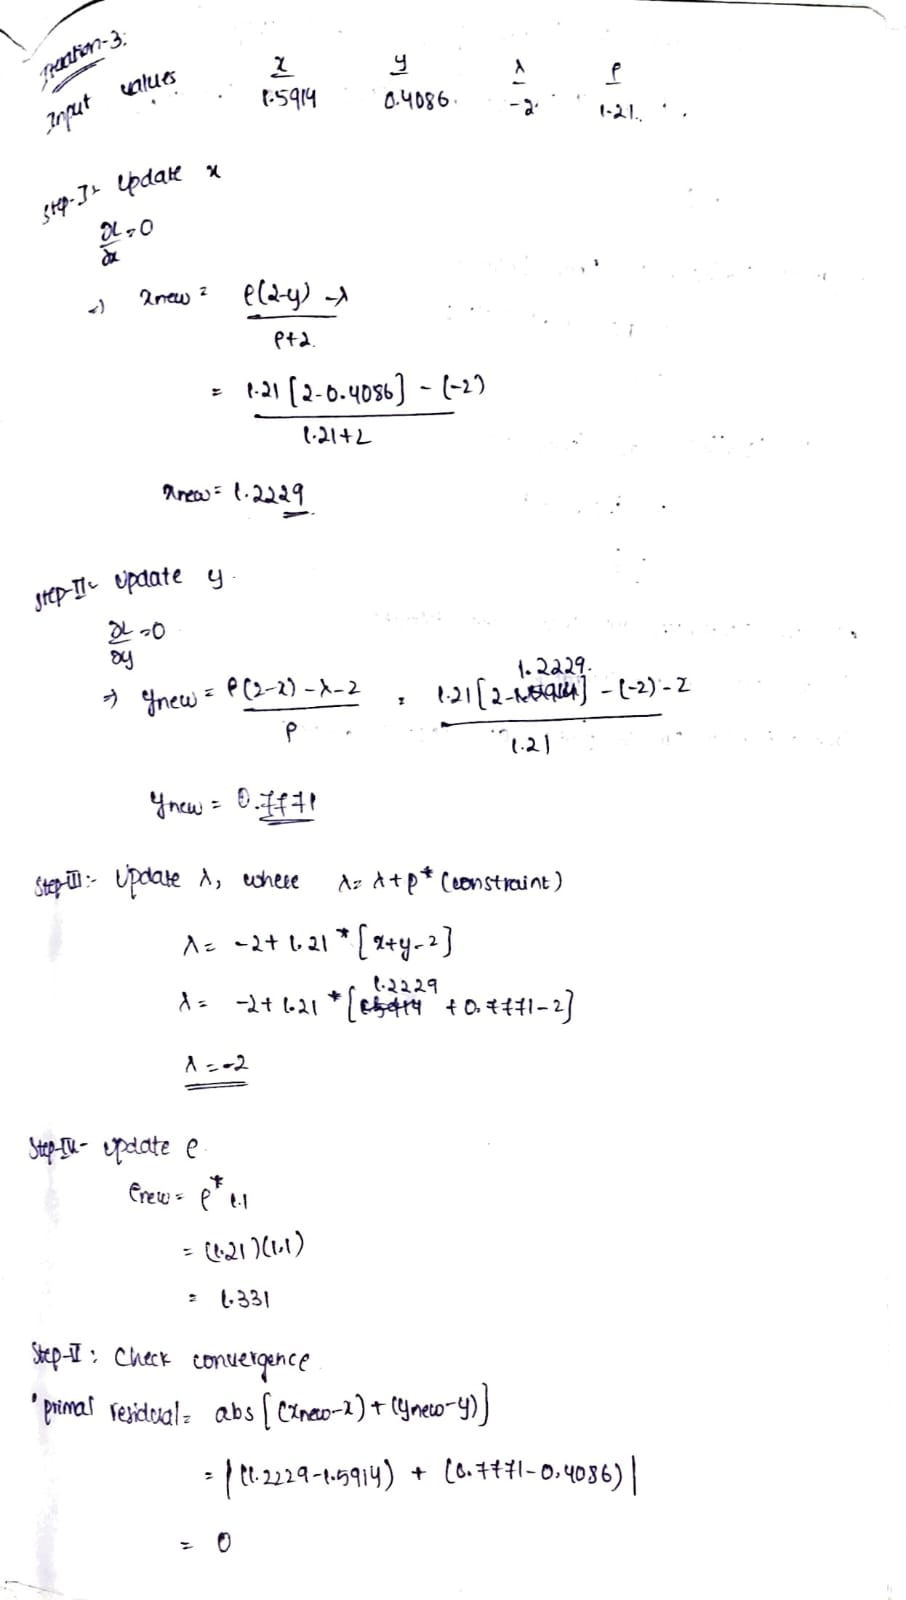 Iteration-3:
Input values x y λ ρ
1.5914 0.4086 -2 1.21
Step-I: Update x
∂L/∂x = 0
=) xnew = ρ(2-y) -λ / ρ+2
= 1.21 [2-0.4086] - (-2) / 1.21+2
xnew = 1.2229
Step-II: Update y
∂L/∂y = 0
=> ynew = ρ(2-x) -λ-2 / ρ = 1.21 [2-1.2229] - (-2) -2 / 1.21
ynew = 0.7771
Step-III:- Update λ, where λ= λ+ρ* (constraint)
λ= -2+ 1.21 * [x+y-2]
λ= -2+ 1.21 * [1.2229 + 0.7771-2]
λ = -2
Step-IV- update ρ
ρnew = ρ* 1.1
= (1.21)(1.1)
= 1.331
Step-V: Check convergence
primal residual= abs [(xnew-x)+(ynew-y)]
= |(1.2229-1.5914) + (0.7771-0.4086)|
= 0